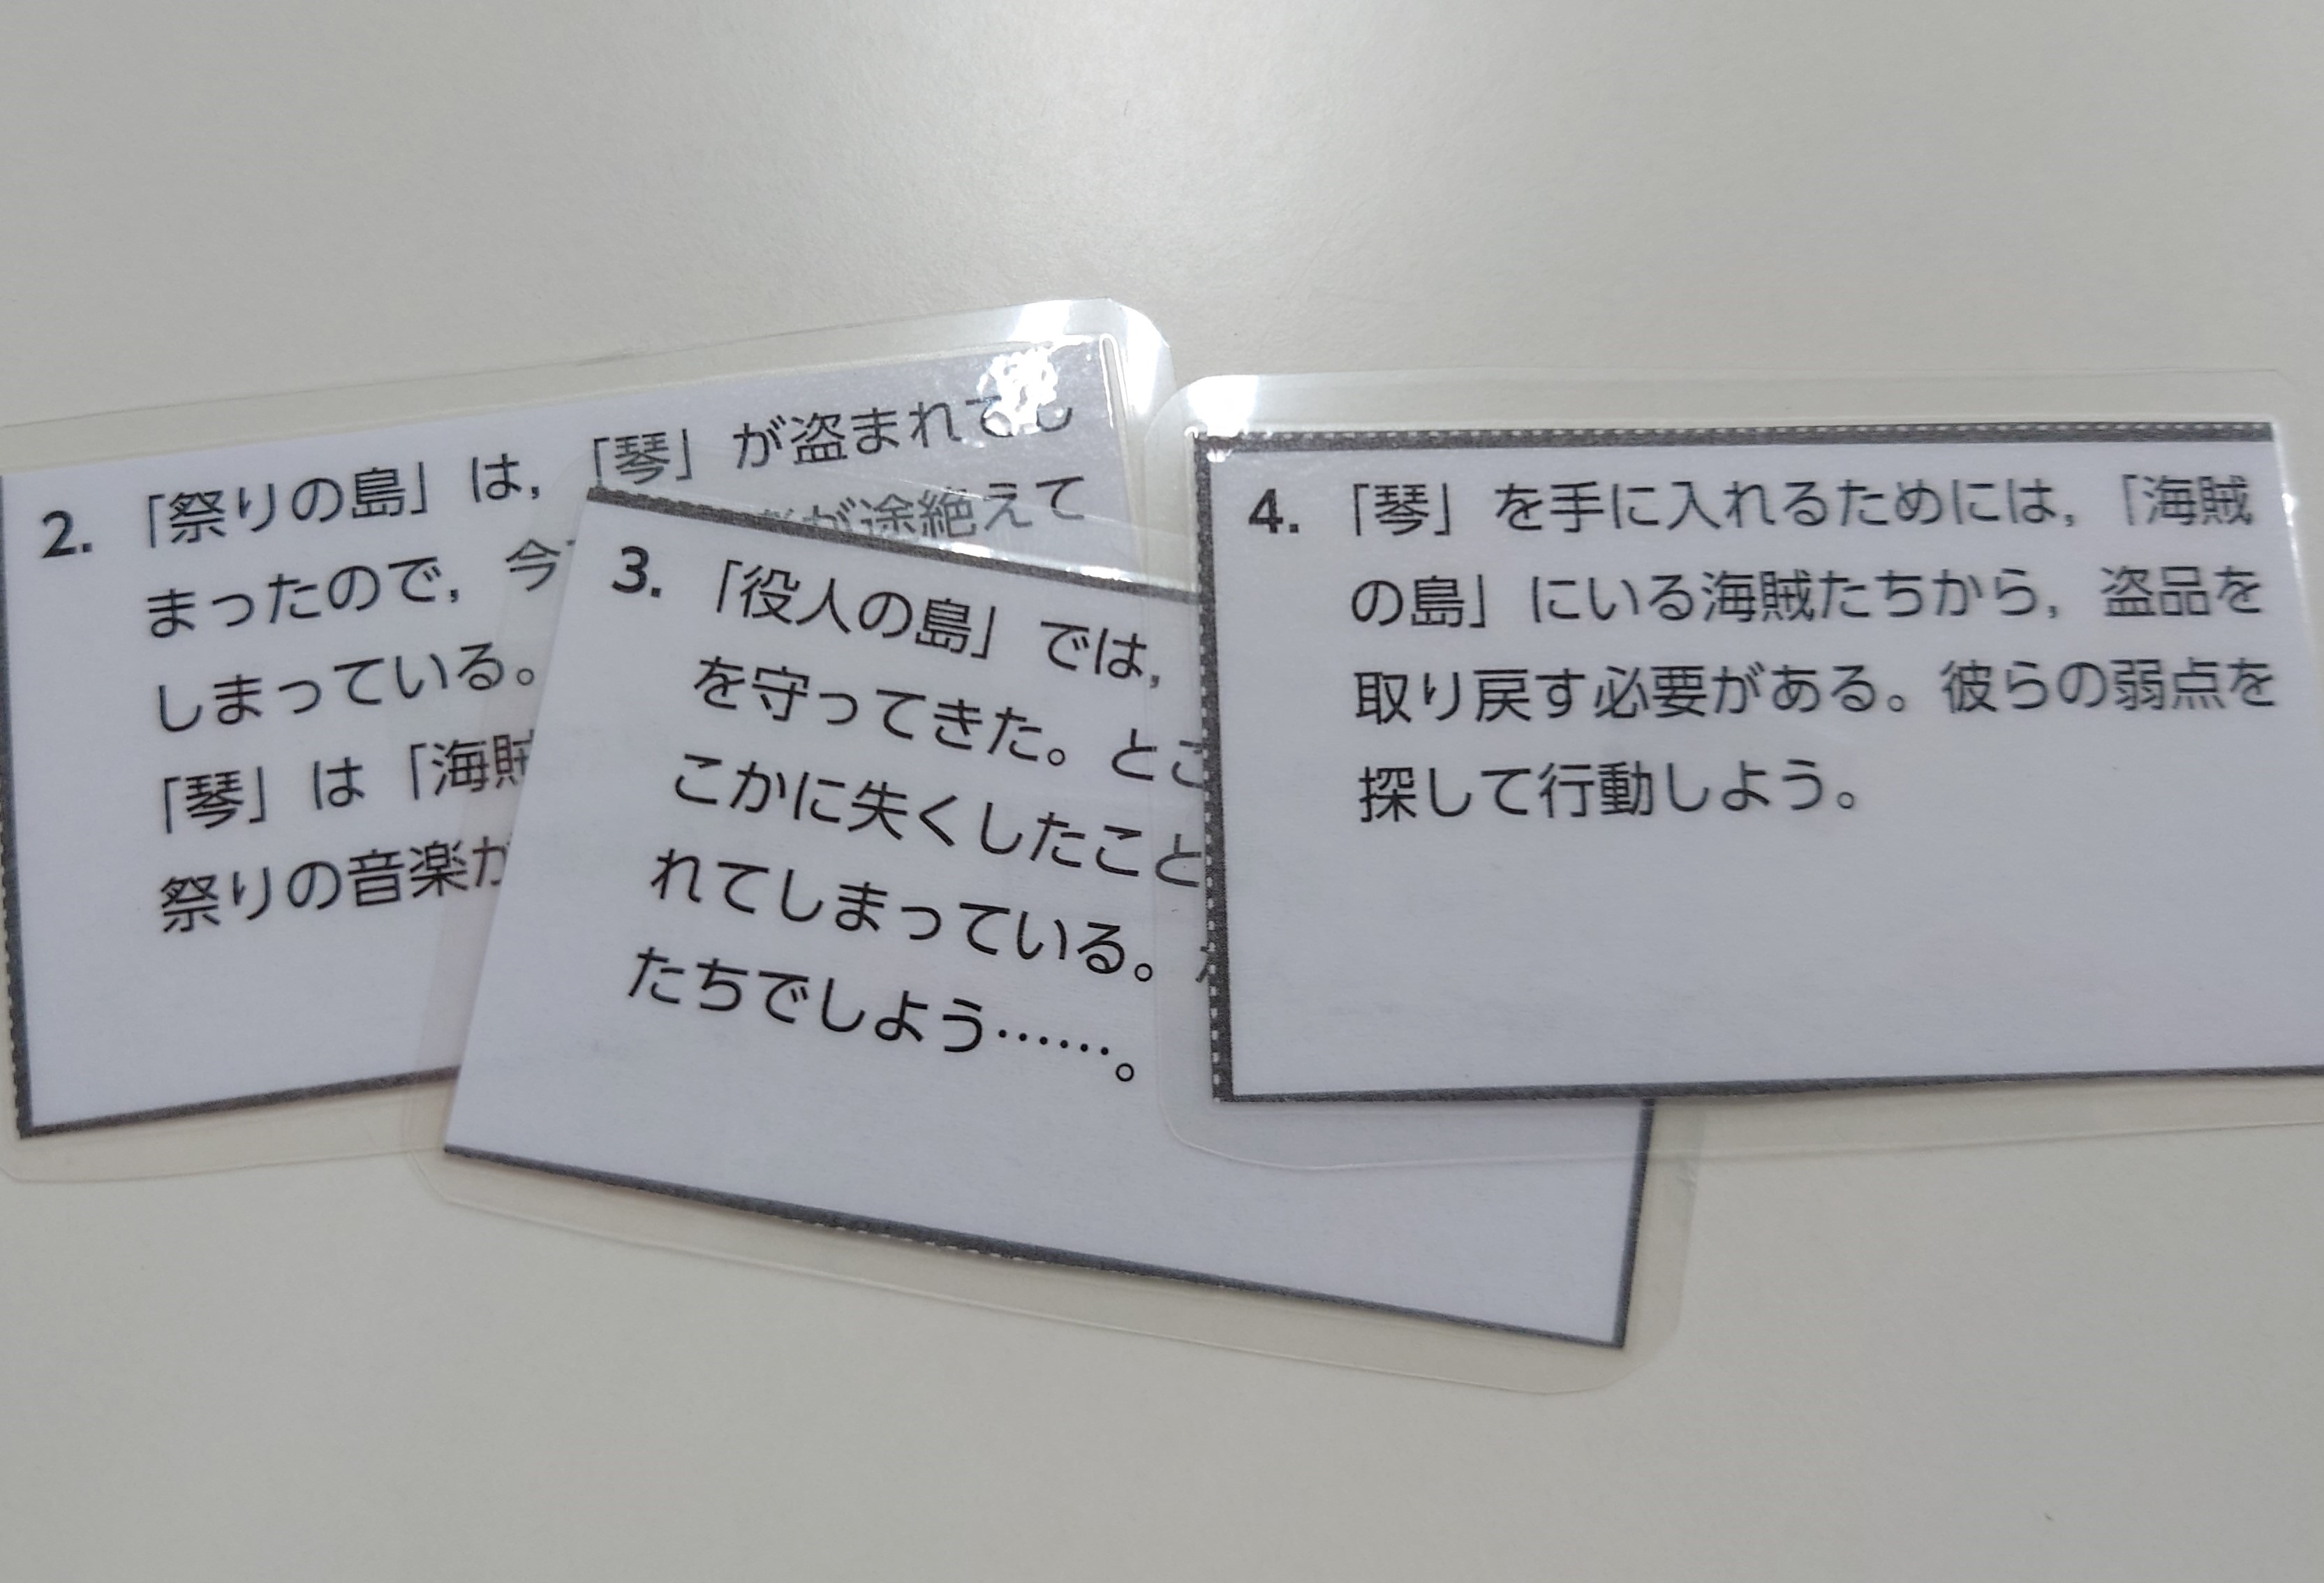 2. 「祭りの島」は,「琴」が盗まれてし
まったので, 今 が途絶えて
しまっている。
「琴」は「海賊
祭りの音楽が
3. 「役人の島」では,
を守ってきた。とこ
こかに失くしたこと
れてしまっている。
たちでしよう……。
4. 「琴」を手に入れるためには,「海賊
の島」にいる海賊たちから, 盗品を
取り戻す必要がある。彼らの弱点を
探して行動しよう。